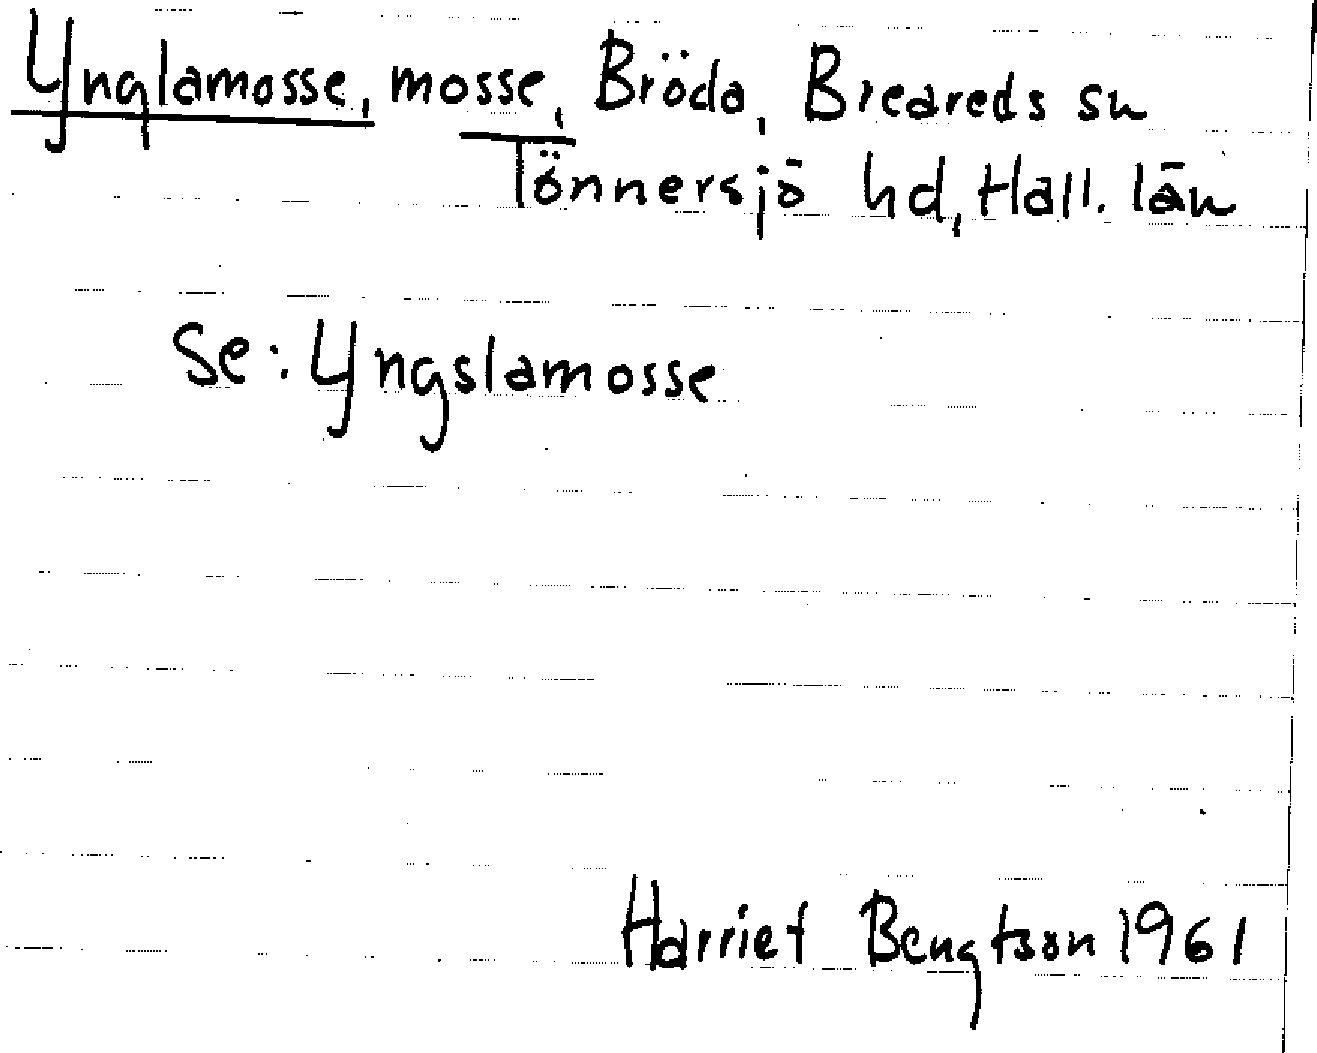 Ynglamosse, mosse, Bröda, Breareds sn
Tönnersjö hd, Hall. län
Se: Yngslamosse
Harriet Bengtson 1961